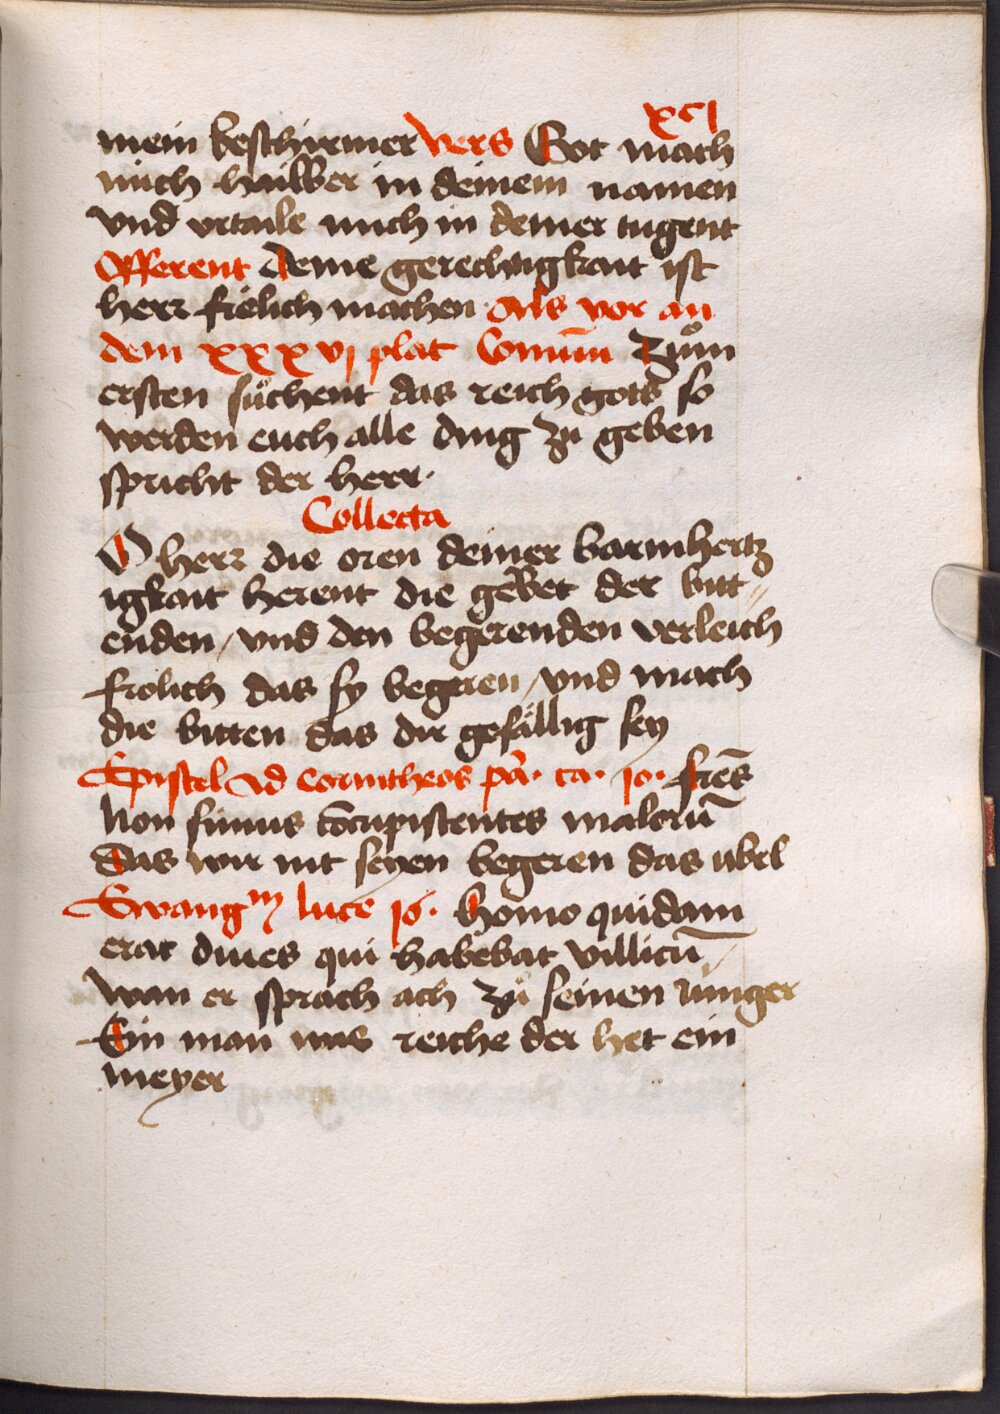 xcj
mein beschirmer Vers Got mach
mich hailber in deinem namen
vnd vrtaile mich in deiner tugent
Offerent Deine gerechtigkait ist
herr frölich machen Als vor an
dem xxxvj plat Comūm Zům
ersten sůchent das reich gots so
werden euch alle ding zu geben
spricht der herr·
Collecta
O herr die oren deiner barmhertz
igkait herent die gebet der bitt⸗
enden / vnd den begerenden verleich
frolich das sy begeren / vnd mach
die bitten das dir gefällig sey
Epistel Ad corintheos pā· ca· 10· fr̄es
Non simus concupistentes malorū
Das wir nit seyen begeren das ubel
Ewangm luce 16· Homo quidam
erat diues qui habebat villicū /
wan er sprach ach zů seinen iunger
Ein man was reiche der het ein
meyer